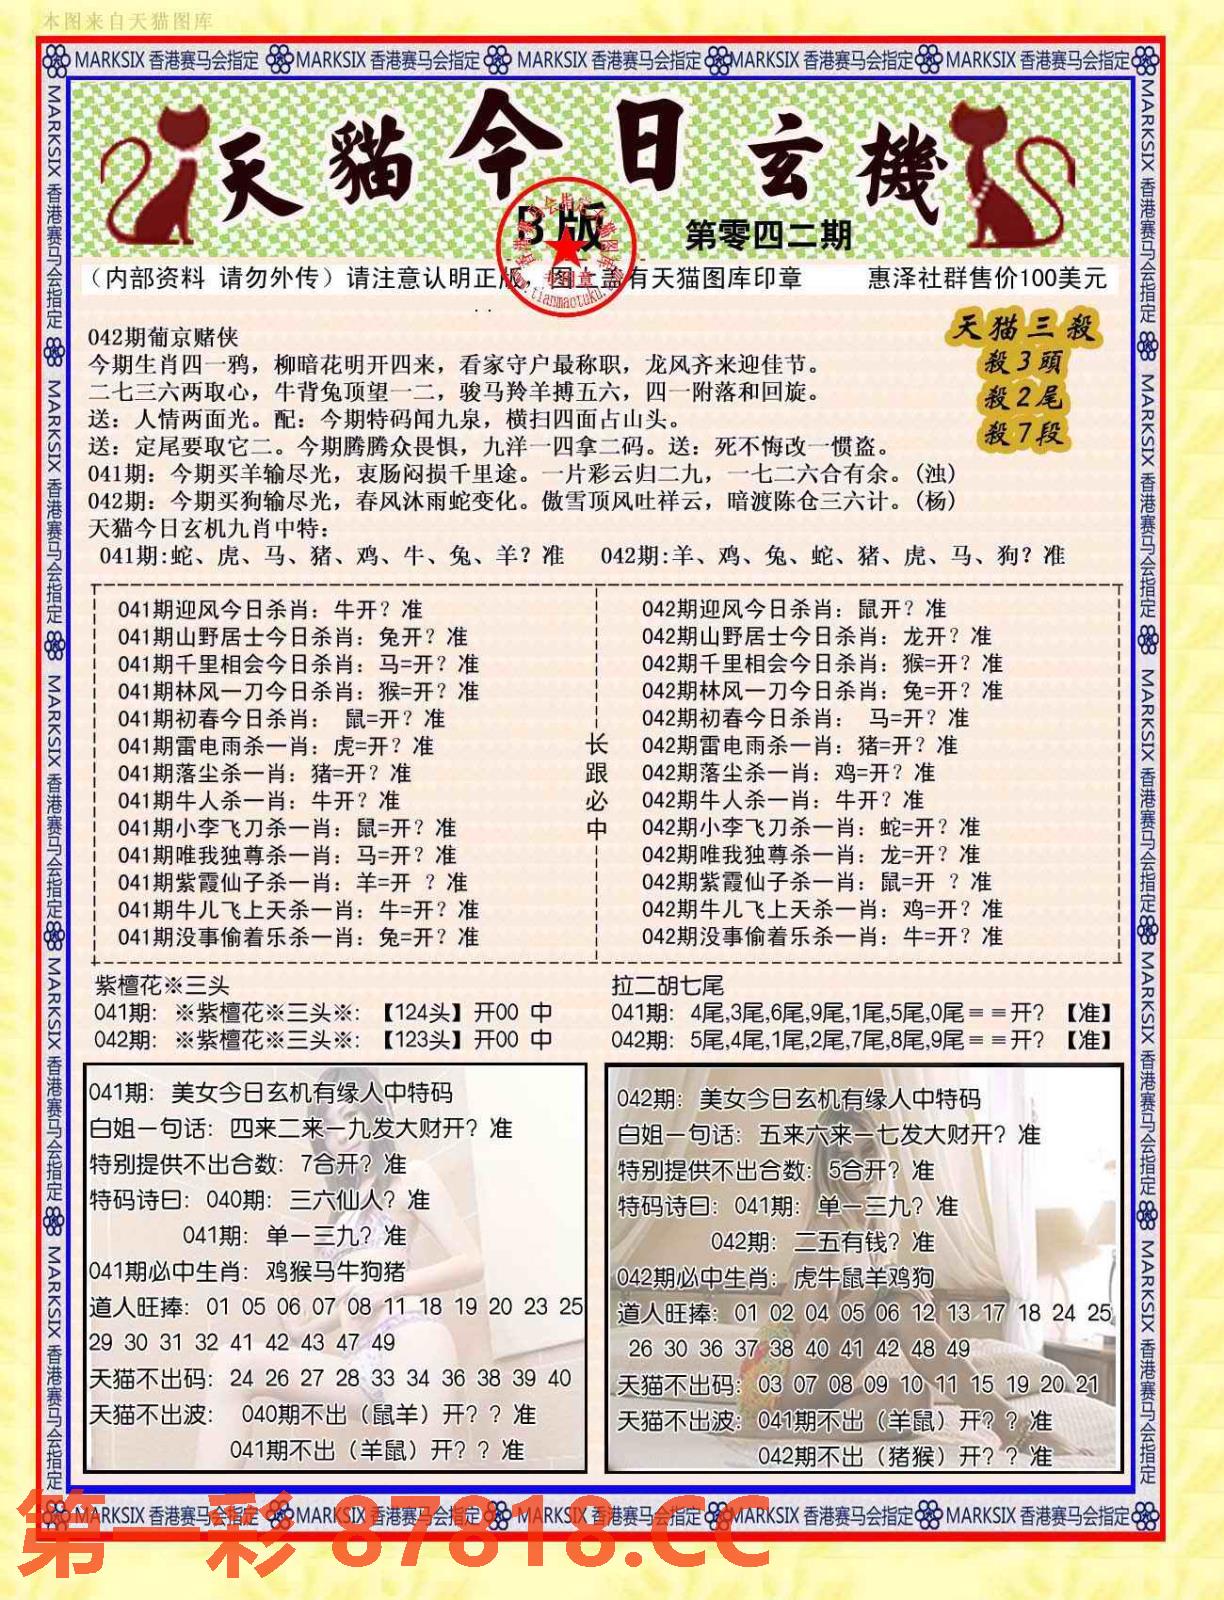 本图来自天猫图库
MARKSIX 香港赛马会指定 MARKSIX 香港赛马会指定 MARKSIX 香港赛马会指定 MARKSIX 香港赛马会指定 MARKSIX 香港赛马会指定
天貓今日玄機
B版
第零四二期
（内部资料 请勿外传）请注意认明正版 图上盖有天猫图库印章 惠泽社群售价100美元
专用章
www.tianmaotuku.com
天猫三殺
殺3頭
殺2尾
殺7段
042期葡京赌侠
今期生肖四一鸦，柳暗花明开四来，看家守户最称职，龙风齐来迎佳节。
二七三六两取心，牛背兔顶望一二，骏马羚羊搏五六，四一附落和回旋。
送：人情两面光。配：今期特码闻九泉，横扫四面占山头。
送：定尾要取它二。今期腾腾众畏惧，九洋一四拿二码。送：死不悔改一惯盗。
041期：今期买羊输尽光，衷肠闷损千里途。一片彩云归二九，一七二六合有余。(浊)
042期：今期买狗输尽光，春风沐雨蛇变化。傲雪顶风吐祥云，暗渡陈仓三六计。(杨)
天猫今日玄机九肖中特：
041期:蛇、虎、马、猪、鸡、牛、兔、羊？准 042期:羊、鸡、兔、蛇、猪、虎、马、狗？准
041期迎风今日杀肖：牛开？准
041期山野居士今日杀肖：兔开？准
041期千里相会今日杀肖：马=开？准
041期林风一刀今日杀肖：猴=开？准
041期初春今日杀肖： 鼠=开？准
041期雷电雨杀一肖：虎=开？准
041期落尘杀一肖：猪=开？准
041期牛人杀一肖：牛开？准
041期小李飞刀杀一肖：鼠=开？准
041期唯我独尊杀一肖：马=开？准
041期紫霞仙子杀一肖：羊=开 ？准
041期牛儿飞上天杀一肖：牛=开？准
041期没事偷着乐杀一肖：兔=开？准
长跟必中
042期迎风今日杀肖：鼠开？准
042期山野居士今日杀肖：龙开？准
042期千里相会今日杀肖：猴=开？准
042期林风一刀今日杀肖：兔=开？准
042期初春今日杀肖： 马=开？准
042期雷电雨杀一肖：猪=开？准
042期落尘杀一肖：鸡=开？准
042期牛人杀一肖：牛开？准
042期小李飞刀杀一肖：蛇=开？准
042期唯我独尊杀一肖：龙=开？准
042期紫霞仙子杀一肖：鼠=开 ？准
042期牛儿飞上天杀一肖：鸡=开？准
042期没事偷着乐杀一肖：牛=开？准
紫檀花※三头
041期：※紫檀花※三头※：【124头】开00 中
042期：※紫檀花※三头※：【123头】开00 中
拉二胡七尾
041期：4尾,3尾,6尾,9尾,1尾,5尾,0尾＝＝开？【准】
042期：5尾,4尾,1尾,2尾,7尾,8尾,9尾＝＝开？【准】
041期：美女今日玄机有缘人中特码
白姐一句话：四来二来一九发大财开？准
特别提供不出合数：7合开？准
特码诗曰：040期：三六仙人？准
041期：单一三九？准
041期必中生肖：鸡猴马牛狗猪
道人旺捧：01 05 06 07 08 11 18 19 20 23 25
29 30 31 32 41 42 43 47 49
天猫不出码：24 26 27 28 33 34 36 38 39 40
天猫不出波： 040期不出（鼠羊）开？？准
041期不出（羊鼠）开？？准
042期：美女今日玄机有缘人中特码
白姐一句话：五来六来一七发大财开？准
特别提供不出合数：5合开？准
特码诗曰：041期：单一三九？准
042期：二五有钱？准
042期必中生肖：虎牛鼠羊鸡狗
道人旺捧：01 02 04 05 06 12 13 17 18 24 25
26 30 36 37 38 40 41 42 48 49
天猫不出码：03 07 08 09 10 11 15 19 20 21
天猫不出波：041期不出（羊鼠）开？？准
042期不出（猪猴）开？？准
MARKSIX 香港赛马会指定 MARKSIX 香港赛马会指定 MARKSIX 香港赛马会指定 MARKSIX 香港赛马会指定 MARKSIX 香港赛马会指定
第一彩 87818.CC